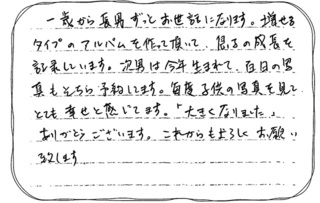 一歳から長男ずっとお世話になります。増せる
タイプのアルバムを作って頂いて、息子の成長を
記録しています。次男は今年生まれて、百日の写
真もそちら予約してます。毎度子供の写真を見て
とても幸せと感じてます。「大きくなりました」
ありがとうございます。これからもよろしくお願い
致します